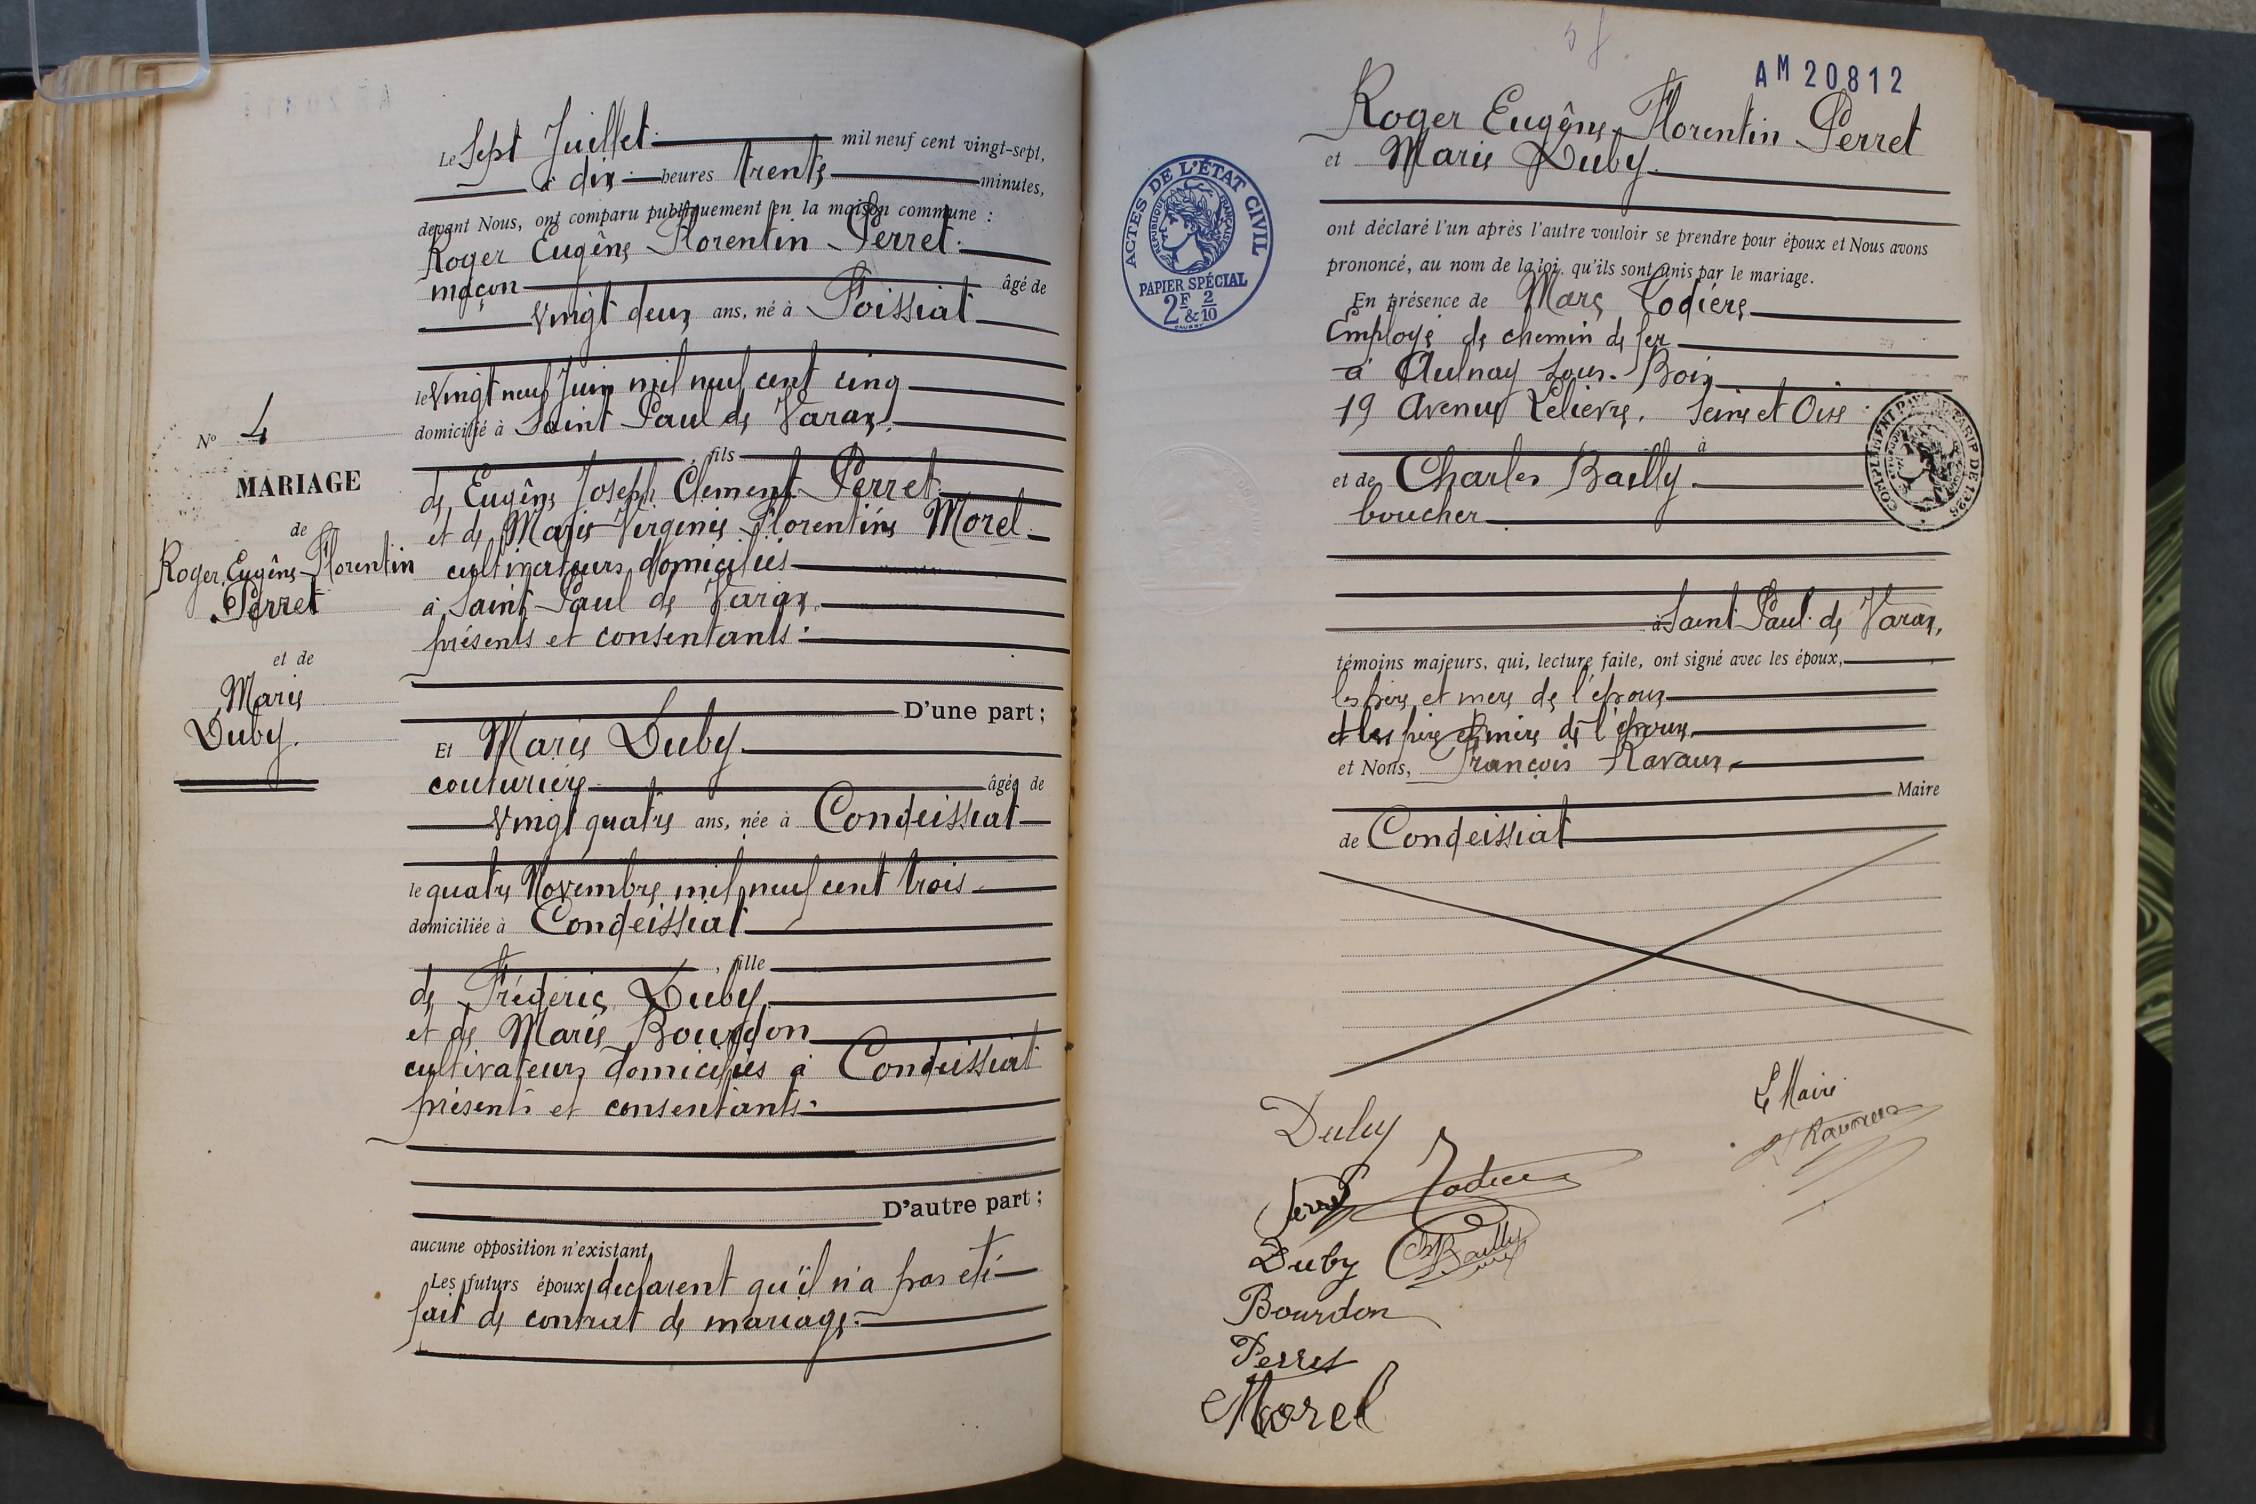 Le Sept Juillet mil neuf cent vingt-sept,
à dix heures trente minutes,
devant Nous, ont comparu publiquement en la maison commune :
Roger Eugène Florentin Perret
maçon âgé de
vingt deux ans, né à Poissiat
le vingt neuf Juin mil neuf cent cinq
domicilié à Saint Paul de Varax
, fils
de Eugène Joseph Clément Perret
et de Marie Virginie Florentine Morel
cultivateurs domiciliés
à Saint Paul de Varax
présents et consentants
D'une part ;
Et Marie Duby
couturière âgée de
vingt quatre ans, née à Condeissiat
le quatre Novembre mil neuf cent trois
domiciliée à Condeissiat
, fille
de Frédéric Duby
et de Marie Bourdon
cultivateurs domiciliés à Condeissiat
présents et consentants
D'autre part ;
aucune opposition n'existant
Les futurs époux déclarent qu'il n'a pas été
fait de contrat de mariage
N° 4
MARIAGE
de
Roger Eugène Florentin
Perret
et de
Marie
Duby.
AM 20812
Roger Eugène Florentin Perret
et Marie Duby
ont déclaré l'un après l'autre vouloir se prendre pour époux et Nous avons
prononcé, au nom de la loi, qu'ils sont unis par le mariage.
En présence de Marc Todière
Employé de chemin de fer
à Aulnay Sous-Bois
19 Avenue Lelièvre. Seine et Oise
à
et de Charles Bailly
boucher
à Saint Paul de Varax,
témoins majeurs, qui, lecture faite, ont signé avec les époux,
les père et mère de l'époux
et les père et mère de l'épouse
et Nous, François Ravaux
Maire
de Condeissiat
ACTES DE L'ÉTAT CIVIL
RÉPUBLIQUE FRANÇAISE
PAPIER SPÉCIAL
2F & 2/10
COMPLÉMENT PAYÉ AU TARIF DE 1926
Duby
Perret Todière
Duby Ch Bailly
Bourdon
Perret
Morel
Le Maire
F Ravaux